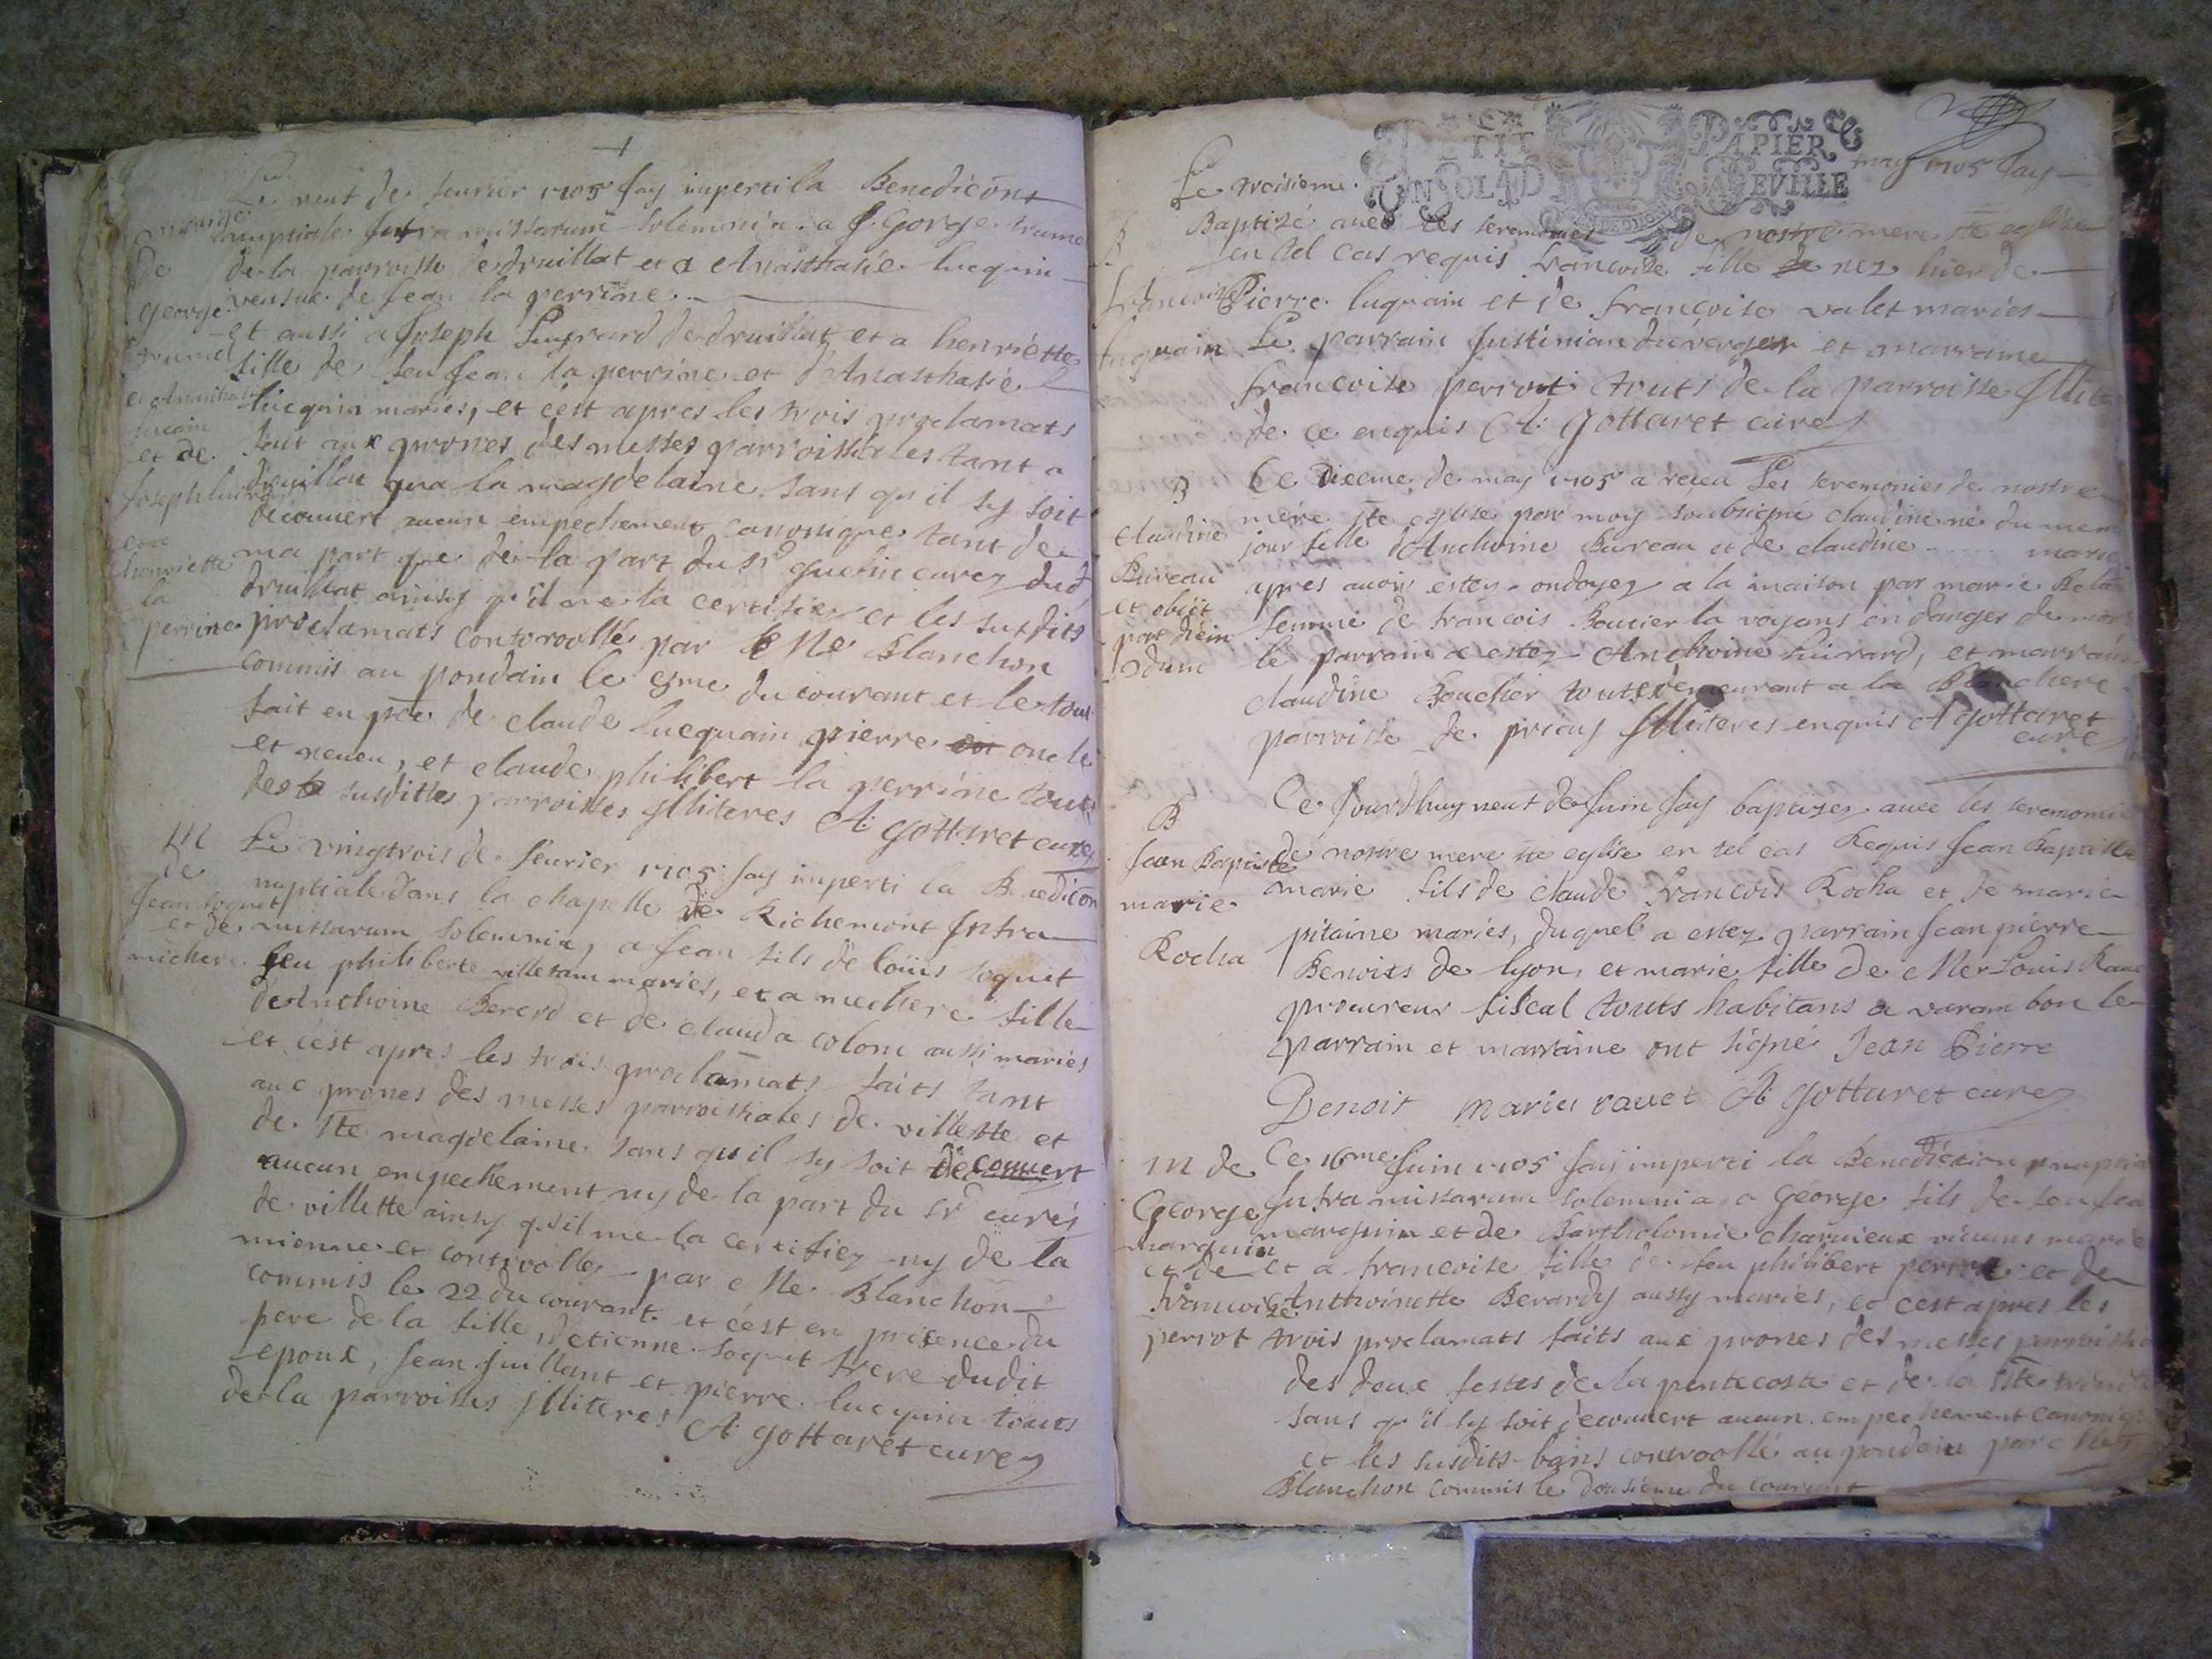 Le neuf de feuvrier 1705 Jay imperti la Benedicõns
nuptiale Intra missarum solemnia a J. Gorge trume
de la parroisse de druillat et a Anasthasie lucquin
veufue de Jean la perrine
et aussi a Joseph de druillat et a henriette
fille de feu Jean la perrine et d'Anasthasie
lucquin mariés, et c'est apres les trois proclamats
fait aux prones des messes parroissiales tant a
druillat qua la magdelaine sans qu'il sy soit
decouvert aucun empechement canonique tant de
ma part que de la part du Sr curez dud
druillat ainsy qu'il me la certifiez et les susdits
proclamats controollé par Me Blanchon
commis au pondain le 8me du courant et le tout
fait en pñce de claude lucquain pierre oncle
et neveu, et claude philibert la perrine touts
des susdittes parroisses Illiteres A: gottaret curez
mariage
de
george
trumel
et Anasthasie
lucain
et de
Joseph
et a
henriette
la
perrine
Le vingtrois de feuvrier 1705 Jay imperti la Benedicõn
nuptiale dans la chapelle de Richemont Intra
missarum solemnia, a Jean fils de loüis soquet
feu philiberte villetam mariés, et a mechere fille
de Anthoine Berard et de clauda colom aussi mariés
et c'est apres les trois proclamats faits tant
aux prones des messes parroissiales de villette et
de Ste magdelaine sans qu'il sy soit decouvert
aucun empechement ny de la part du Sr curés
de villette ainsy qu'il me la certifiez ny de la
mienne et controollez par Me Blanchon
commis le 22 du courant et c'est en presence du
pere de la fille, d'etienne soquet frere dudit
epoux, Jean Juillant et pierre lucquin touts
de la parroisses Illiteres A: gottaret curez
M
de
Jean soquet
et de
michere
PETIT PAPIER
UN SOL 4 D LA FEUILLE
Le troisieme may 1705 Jay
Baptisé avec les ceremonies de nostre mere ste eglise
en tel cas requis francoise fille nez hier de
Pierre luquain et de francoise valet mariés
Le parrain Justinian duverger et marraine
francoise perrot touts de la parroisse
de ce enquis A: gottaret curez
B
francoise
luquain
Ce dixeme de may 1705 a receu les ceremonies de nostre
mere ste eglise par moy soubsigné claudine né du mem
jour fille d'Anthoine Bureau et de claudine ...... marié
apres avoir estez ondoyez a la maison par marie
femme de francois Boucier la voyans en danger de mor
le parrain a estez Anthoine huirard, et marraine
claudine Boucher touts demeurant a la Blanchere
parroisse de priay Illiteres enquis A gottaret
curé
B
claudine
Bureau
et obiit
post diem
Ce Jourdhuy neuf de Juin Jay baptizez avec les ceremonie
de nostre mere ste eglise en tel cas Requis Jean Baptiste
marie fils de claude francois Rocha et de marie
pitaine mariés, duquel a estez parrain Jean pierre
Benoits de lyon, et marie fille de Mer Louis Rave
procureur fiscal touts habitans a varambon le
parrain et marraine ont signé Jean Pierre
Benoit marie ravet A: gottaret curez
B
Jean Baptiste
marie
Rocha
Ce 16me Juin 1705 Jay imperti la Benediction nuptia
Intra missarum solemnia, a George fils de feu Jea
marquin et de Bartholomie charvieux marié
et a francoise fille de feu philibert perrot et de
Anthoinette Berardy aussy mariés, et c'est apres les
trois proclamats faits aux prones des messes parroissia
des deux festes de la pentecoste et de la Ste trinité
sans qu'il sy soit decouvert aucun empechement canoniq
et les susdits bans controollé au pondain par Me
Blanchon commis le dousieme du courant
M de
George
marquin
et de
francoise
perrot